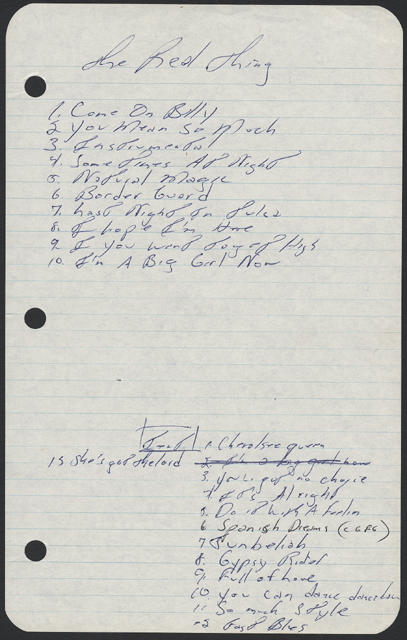 The Real Thing
1. Come On Billy
2. You Mean So Much
3. Instrumental
4. Some Times At Night
5. Natural Magic
6. Border Guard
7. Last Night In Tulsa
8. I hope I'm
9. If you want to get High
10. I'm A Big Girl Now
1. Cherokee queen
13 She's got the
2. I'm a big girl now
3. you got no choice
4. It's Alright
5. Do it With A Feelin
6 Spanish Dreams (
7
8. Gypsy Rider
9. Full of Love
10 you can dance
11. So much Style
12 Fast Blues